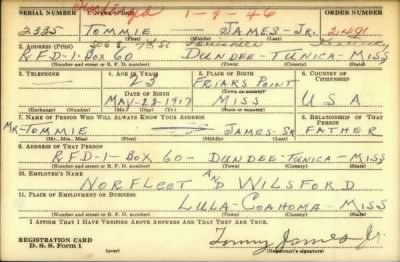 1-9-46
SERIAL NUMBER
ORDER NUMBER
2335
TOMMIE — JAMES-JR.
(Last)
2. ADDRESS (Print)
RFD-1-BOX 60 DUNDEE-TUNICA-MISS
(Number and street or R. F. D. number)
3. TELEPHONE
4. AGE IN YEARS
5. PLACE OF BIRTH
6. COUNTRY OF CITIZENSHIP
23
FRIARS POINT
DATE OF BIRTH
MAY-28-1917
MISS
U S A
(Exchange) (Number)
(Mo.) (Day) (Yr.)
7. NAME OF PERSON WHO WILL ALWAYS KNOW YOUR ADDRESS
8. RELATIONSHIP OF THAT PERSON
MR-TOMMIE — JAMES-SR
FATHER
(Mr., Mrs., Miss)
9. ADDRESS OF THAT PERSON
RFD-1-BOX 60-DUNDEE-TUNICA-MISS
(Number and street or R. F. D. number)
10. EMPLOYER'S NAME
NORFLEET AND WILSFORD
11. PLACE OF EMPLOYMENT OR BUSINESS
LULA-COAHOMA-MISS
(Number and street or R. F. D. number)
I AFFIRM THAT I HAVE VERIFIED ABOVE ANSWERS AND THAT THEY ARE TRUE.
REGISTRATION CARD
D. S. S. Form 1
Tommy James Jr
(Registrant's signature)